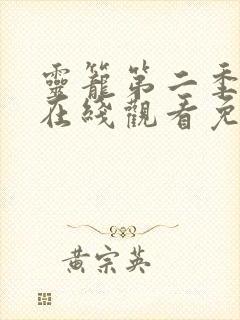 靈籠第二季
在綫觀看免
黃宗英